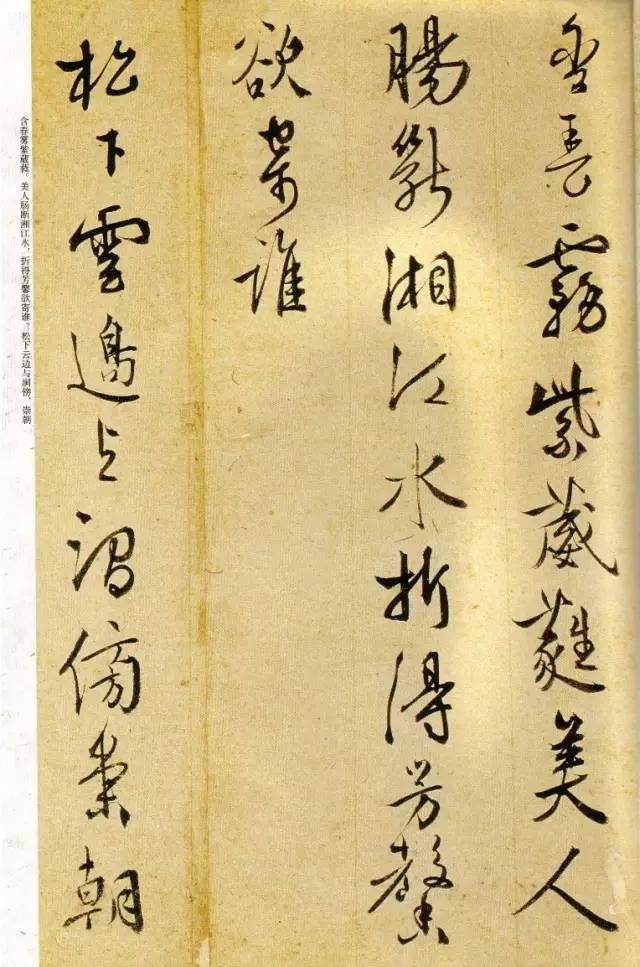 含春霧紫葳蕤美人
腸斷湘江水折得芳馨
欲寄誰
松下雲邊与澗傍崇朝
含春雾紫葳蕤，美人肠断湘江水，折得芳馨欲寄谁？松下云边与涧傍，崇朝